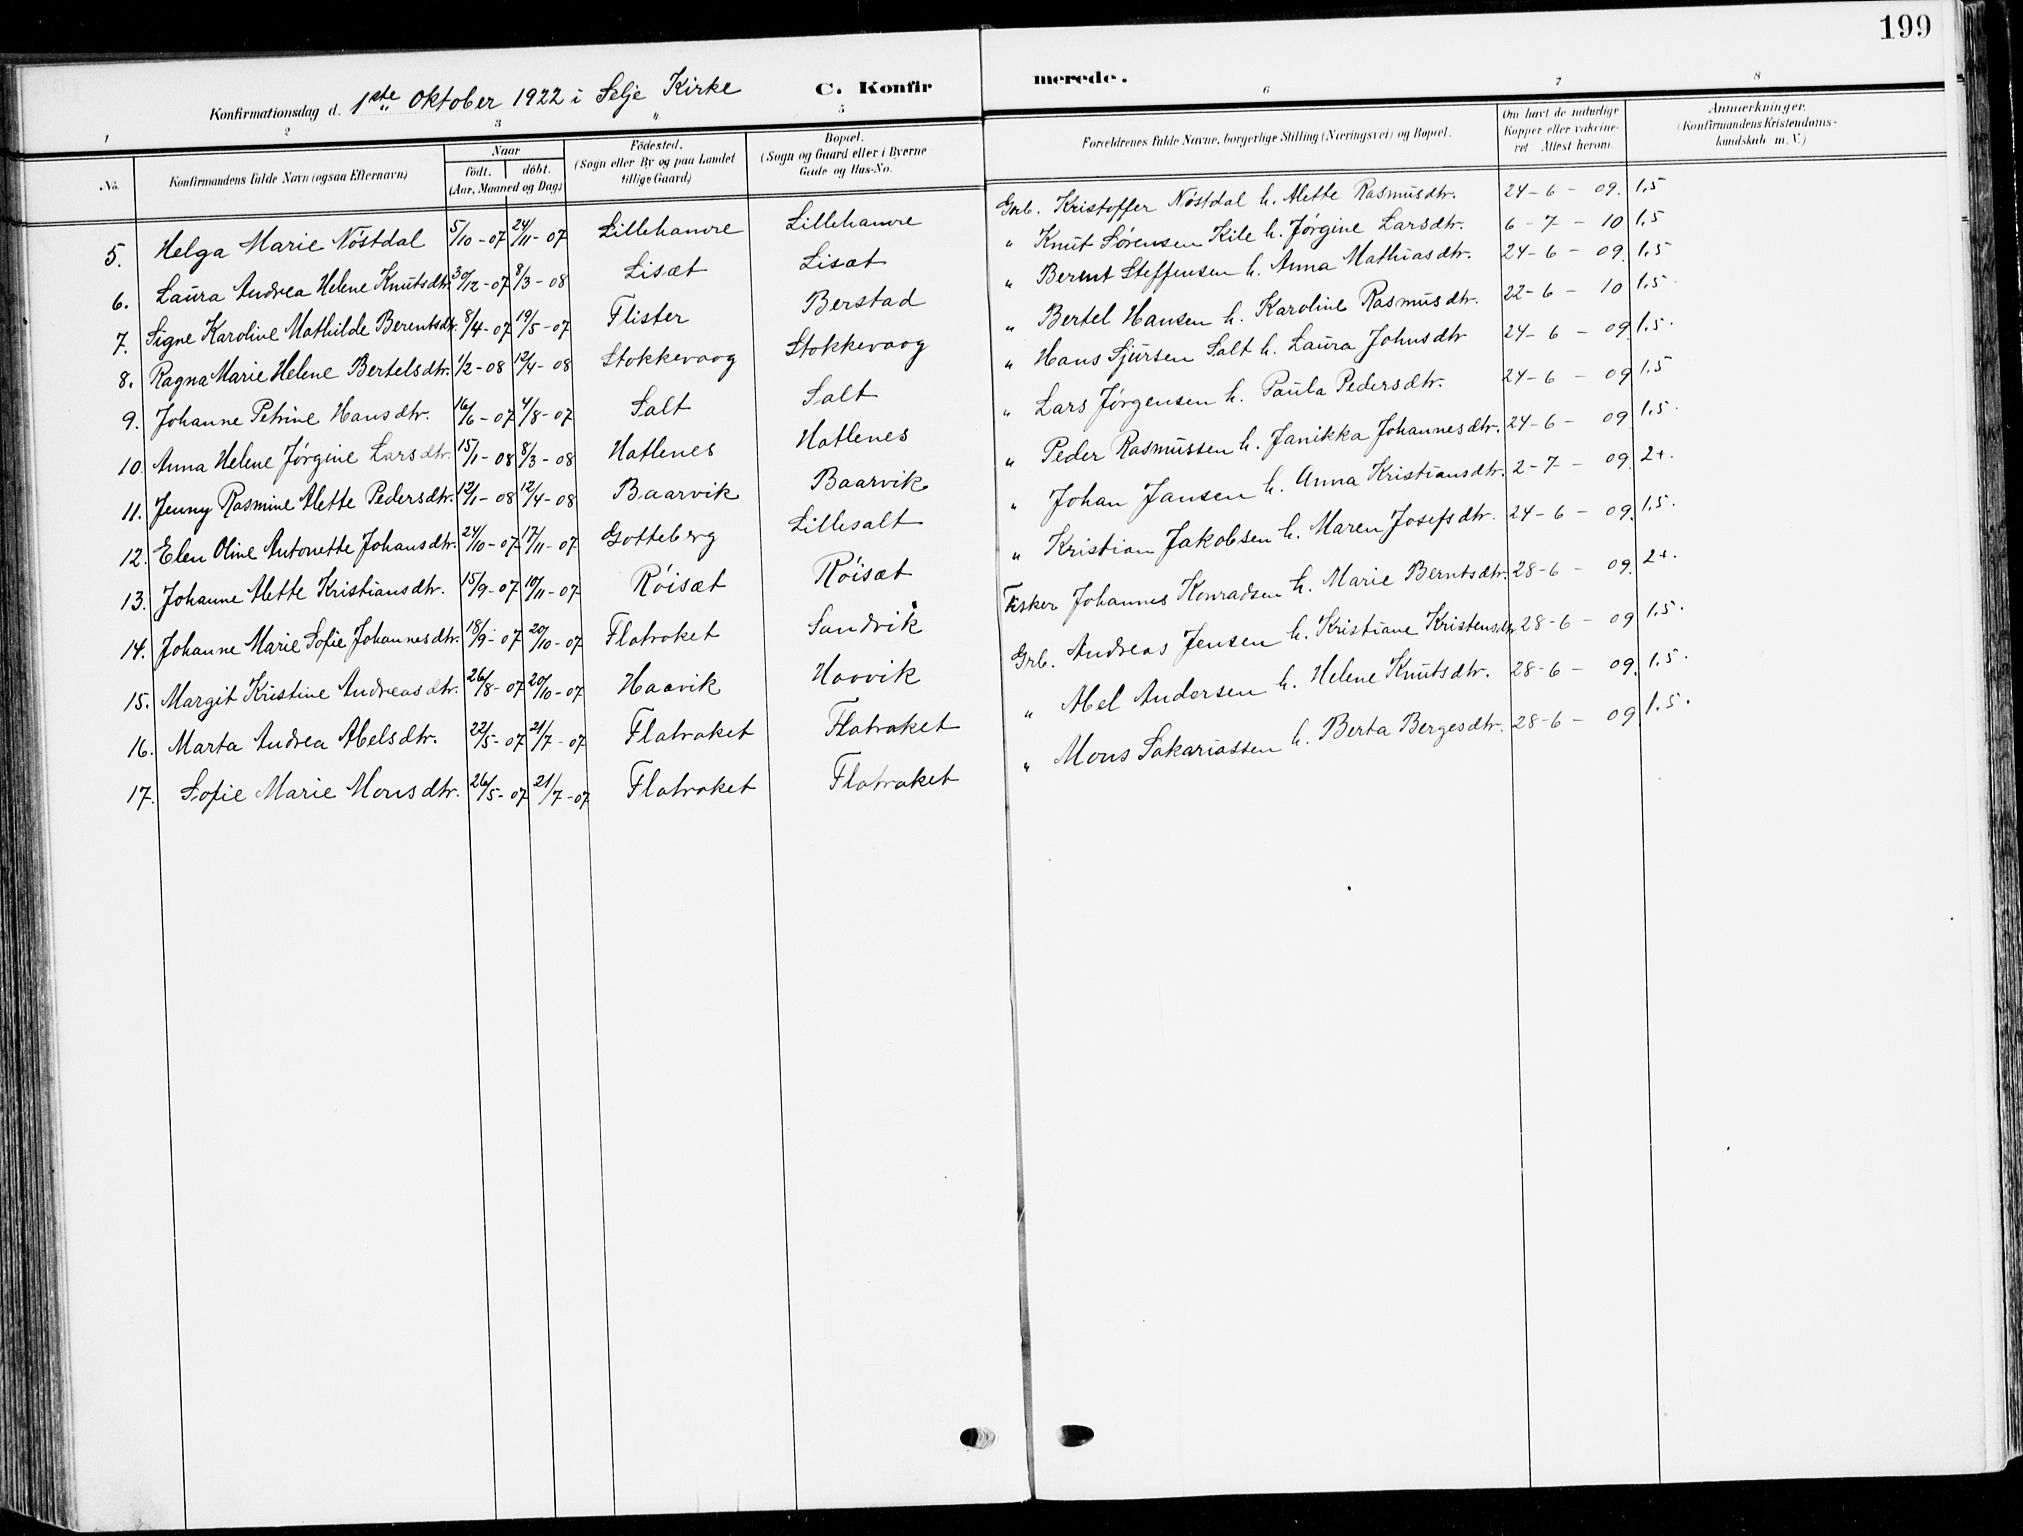 199
Konfirmationsdag d. 1ste Oktober 1922 i Selje Kirke C. Konfirmerede.
1 2 3 " 5 6 7 8
No. Konfirmandens fulde Navn (ogsaa Efternavn) Naar födt. döbt. (Aar, Maaned og Dag) Födested. (Sogn eller By og paa Landet tillige Gaard) Bopæl. (Sogn og Gaard eller i Byerne Gade og Hus-No. Forældrenes fulde Navne, borgerlige Stilling (Næringsvei) og Bopæl. Om havt de naturlige Kopper eller vakcineret. Attest herom. Anmærkninger. (Konfirmandens Kristendomskundskab m. V.)
5. Helga Marie Nöstdal 5/10-07 24/11-07 Lillehamre Lillehamre Grb. Kristoffer Nöstdal h. Alette Rasmusdtr. 24-6-09. 1.5
6. Laura Andrea Helene Knutsdtr. 30/12-07 8/3-08 Lisæt Lisæt " Knut Sørensen Kile h. Jørgine Larsdtr. 6-7-10 1.5
7. Signe Karoline Mathilde Berentsdtr. 8/4-07 19/5-07 Flister Berstad " Berent Steffensen h. Anna Mathiasdtr. 24-6-09. 1.5
8. Ragna Marie Helene Bertelsdtr. 1/2-08 12/4-08 Stokkevaag Stokkevaag " Bertel Hansen h. Karoline Rasmusdtr. 22-6-10 1.5.
9. Johanne Petrine Hansdtr. 16/6-07 4/8-07 Salt Salt " Hans Sjursen Salt h. Laura Johnsdtr 24-6-09. 1.5.
10. Anna Helene Jørgine Larsdtr. 15/1-08 8/3-08 Hatlenes Hatlenes " Lars Jørgensen h. Paula Pedersdtr. 24-6-09 1.5
11. Jenny Rasmine Alette Pedersdtr. 12/1-08 12/4-08 Baarvik Baarvik " Peder Rasmussen h. Janikka Johannesdtr. 24-6-09 1.5.
12. Elen Oline Antonette Johansdtr. 24/10-07 17/11-07 Gotteberg Lillesalt " Johan Jansen h. Anna Kristiansdtr. 2-7-09. 2+.
13. Johanne Alette Kristiansdtr. 15/9-07 10/11-07 Röisæt Röisæt " Kristian Jakobsen h. Maren Josefsdtr. 24-6-09. 1.5.
14. Johanne Marie Sofie Johannesdtr. 18/9-07 20/10-07 Flatraket Sandvik Fisker Johannes Konradsen h. Marie Berntsdtr. 28-6-09. 2+.
15. Margit Kristine Andreasdtr. 26/8-07 20/10-07 Haavik Haavik Grb. Andreas Jensen h. Kristiane Kristensdtr 28-6-09 1.5.
16. Marta Andrea Abelsdtr. 22/5-07 21/7-07 Flatraket Flatraket " Abel Andersen h. Helene Knutsdtr. 28-6-09. 1.5.
17. Sofie Marie Monsdtr. 26/5-07 21/7-07 Flatraket Flatraket " Mons Sakariassen h. Berta Bergesdtr. 28-6-09 1.5.